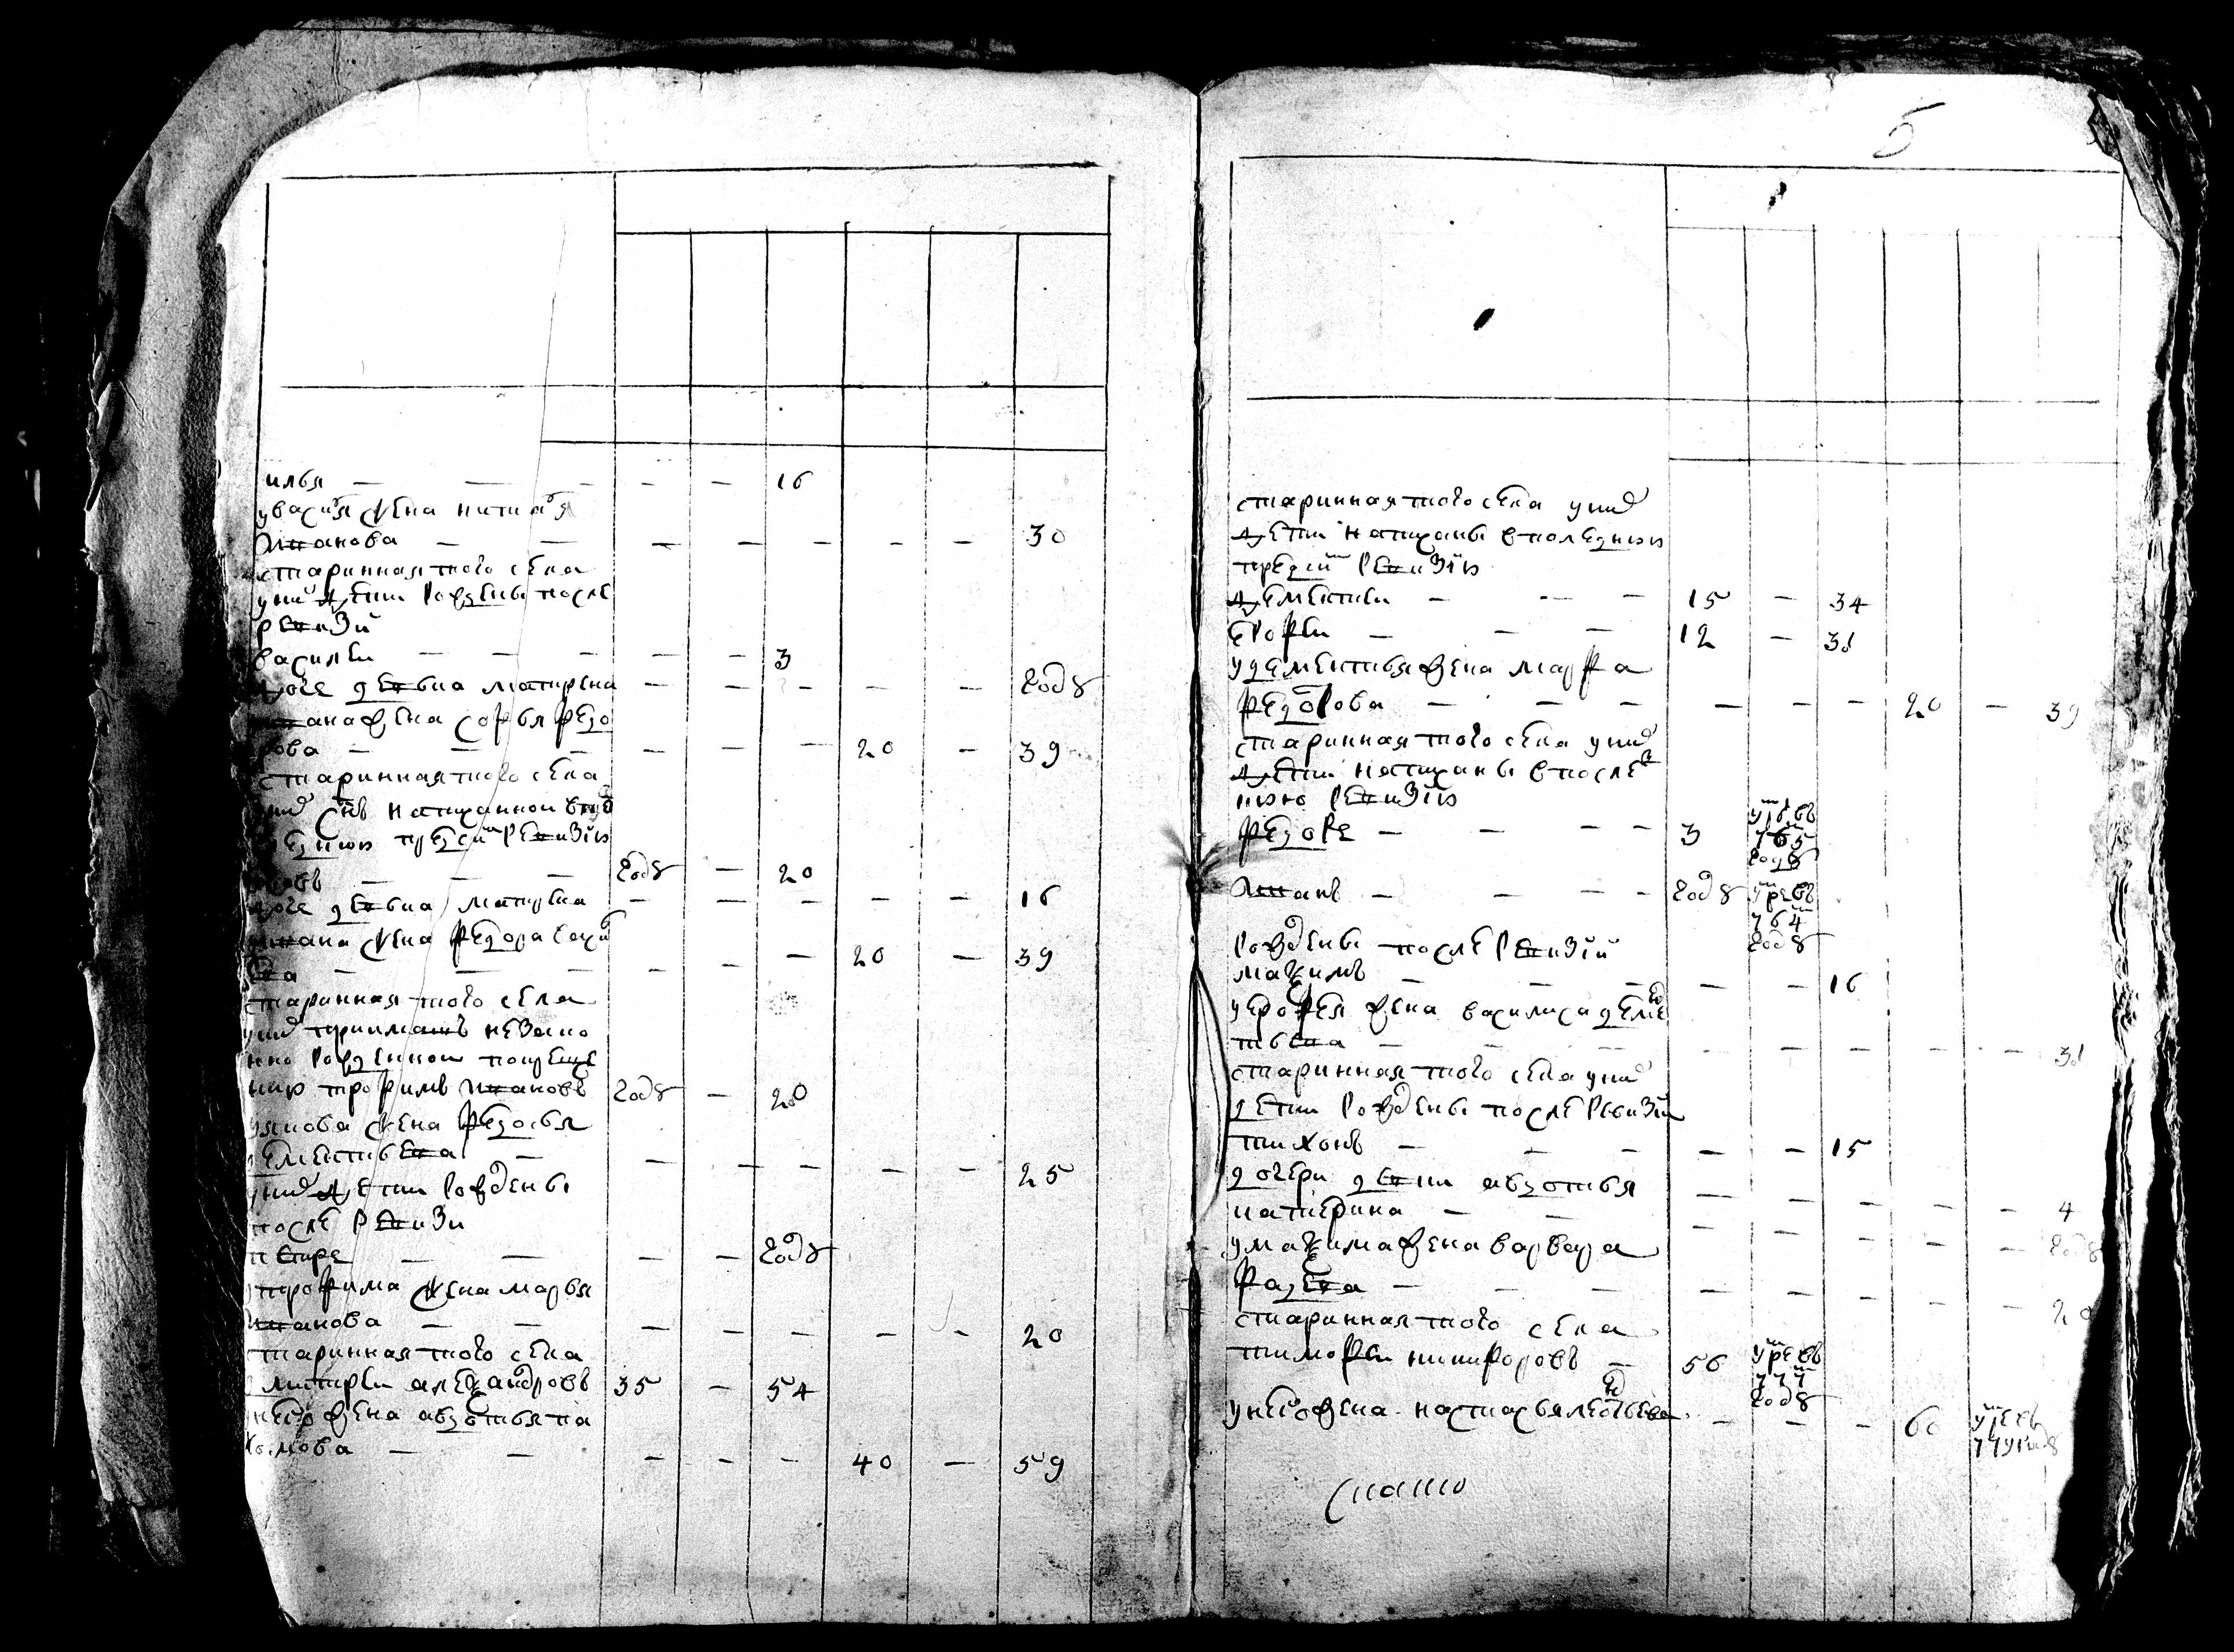 5
илья — — — — — 16
у василья жена
иванова — — — — — — — — 30
стариннаятого села
у них дети рождены после
ревизи
василеи — — — — — 3
дочь девка матрена — — — — — году
ивана жена софья федо
рова — — — — — — 20 — 39
стариннаятого села
у них снъ написанной в
следнюю пред сим ревизию
году — 20
дочь девка матрена — — — — — 16
ивана жена федора
ева — — — — — — 20 — 39
стариннаятого села
у них приимышъ незако
нно рожденной по креще
нию трофимъ ивановъ году — 20
жена федосья
дементьева — — — — — — 25
у них дети рождены
после ревизи
петръ — — — — году
у трофима жена марья
иванова — — — — — — — 20
стариннаятого села
митреи александровъ 35 — 54
у него жена авдотья па
хомова — — — — — 40 — 59
стариннаятого села у них
дети написаны в последнюю
пред сим ревизию
дементеи — — — 15 — 34
ерофеи — — — 12 — 31
у дементья жена марфа
федорова — — — — — — 20 — 39
стариннаятого села у них
дети написаны в послед
нюю ревизию
федоръ — — — 3 умре въ 765 году
иванъ — — — году умре въ 764 году
рождены после ревизии
максимъ — — — — — 16
у ерофея жена василиса деме
тьева — — — — — — — 31
стариннаятого села у них
дети рождены после ревизи
тихонъ — — — — — 15
дочери девки авдотья — — — — — 4
катерина — — — — — — — году
у максима жена варвара
фадеева — — — — — — — — 20
стариннаятого села
тимофеи никифоровъ — 56 умре въ 777 году
у него жена настасья леонтьева — — — 60 умре въ 779 году